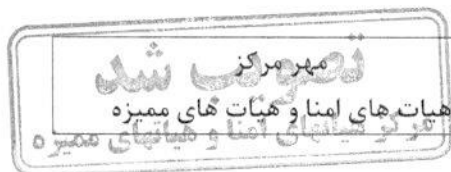 مهر مرکز
هیات های امنا و هیٔات های ممیزه
تصویب شد
مرکز هیاتهای امنا و هیاتهای ممیزه